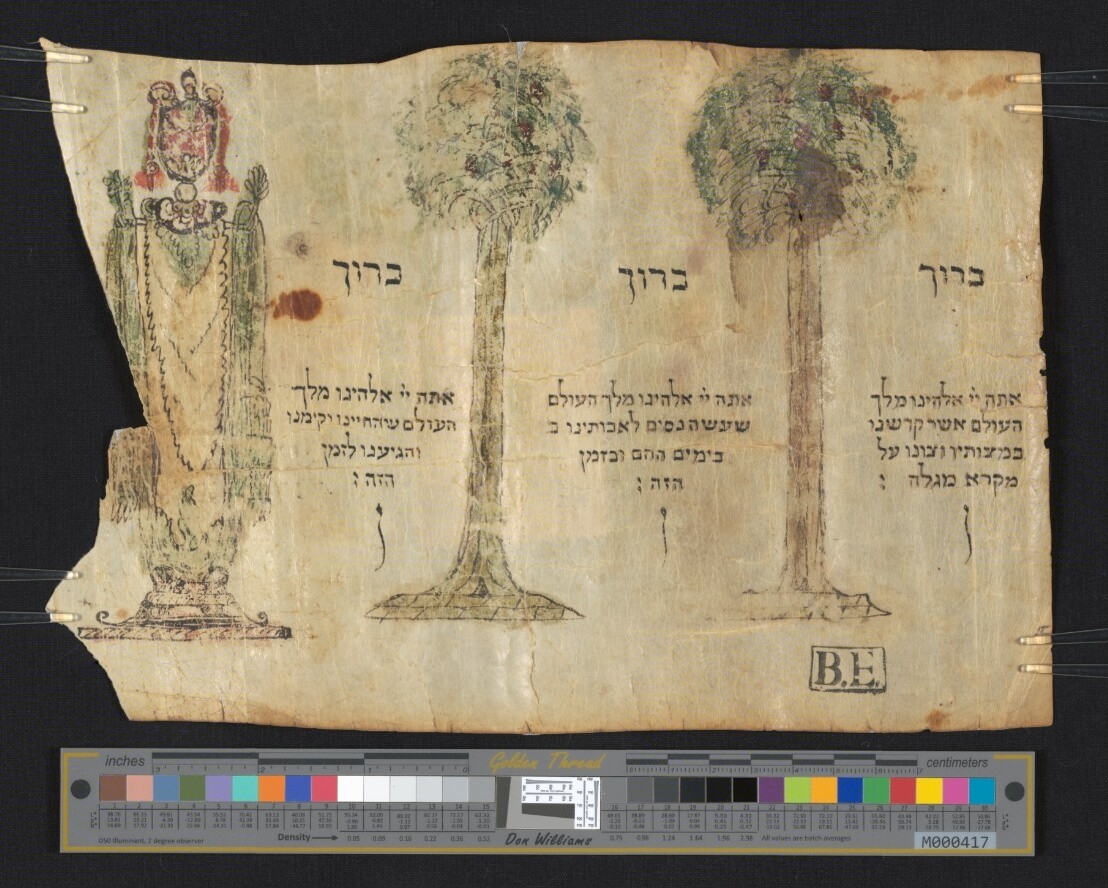 ברוך
אתה יי אלהינו מלך
העולם אשר קדשנו
במצותיו וצונו על
מקרא מגלה :
ן
ברוך
אתה יי אלהינו מלך העולם
שעשה נסים לאבותינו ב
בימים ההם ובזמן
הזה :
ן
ברוך
אתה יי אלהינו מלך
העולם שהחיינו וקימנו
והגיענו לזמן
הזה :
ן
B.E.
inches
Golden Thread
centimeters
D50 Illuminant, 2 degree observer
Density
Don Williams
All values are batch averages
M000417